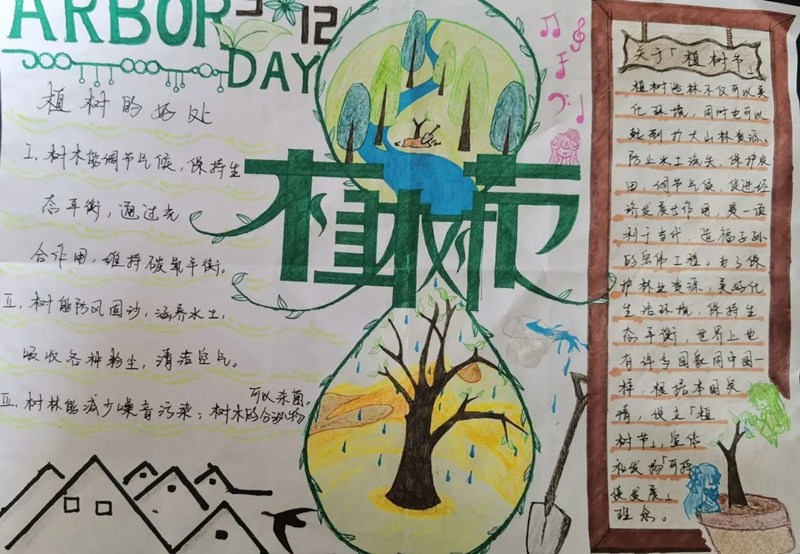 ARBOR
3
12
DAY
植树的好处
I. 树木能调节气候，保持生
态平衡，通过光
合作用，维持碳氧平衡。
II. 树能防风固沙，涵养水土，
吸收各种粉尘，清洁空气。
III. 树林能减少噪音污染；树木的分泌物
可以杀菌。
植树节
关于「植树节」
植树造林不仅可以美
化环境，同时也可以
起到扩大山林资源、
防止水土流失，保护农
田，调节气候，促进经
济发展等作用，是一项
利于当代，造福子孙
的宏伟工程。为了保
护林业资源，美化
生活环境，保持生
态平衡，世界上也
有许多国家同中国一
样，根据本国实
情，设立「植
树节」，宣传
和发扬「可持
续发展」
理念。